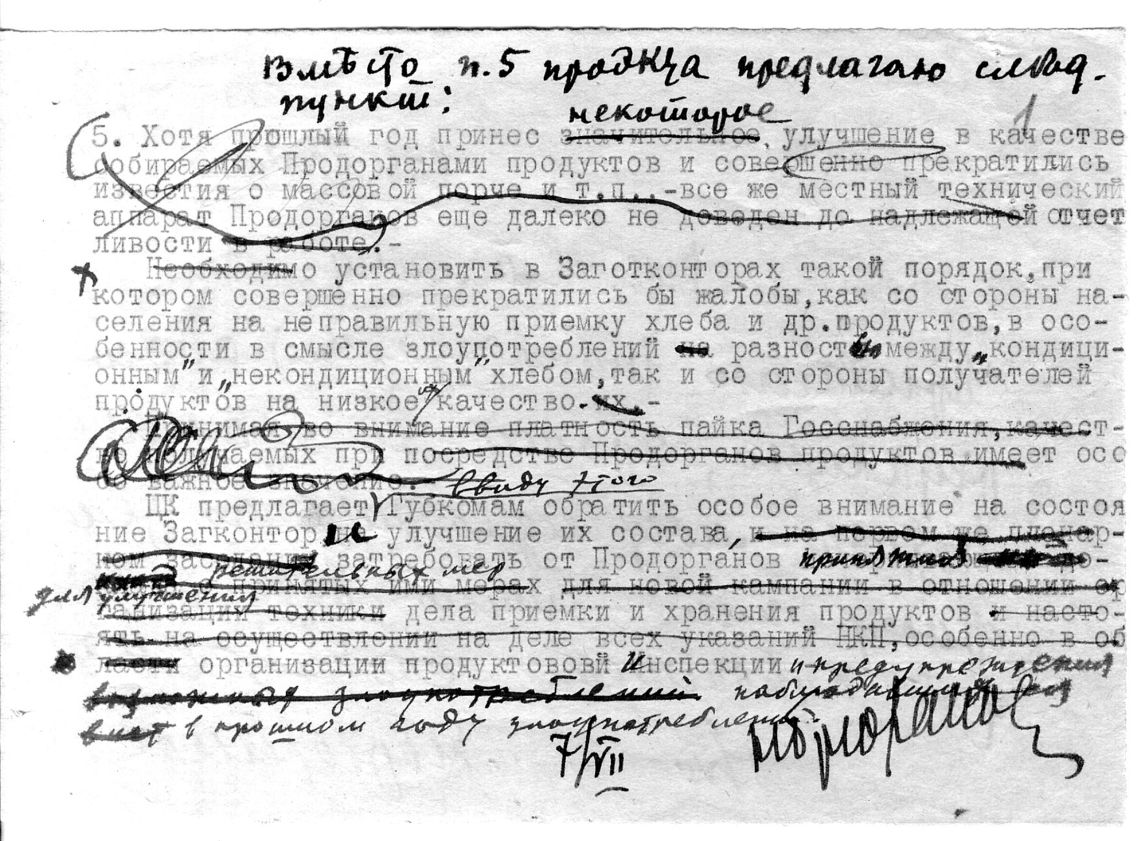 Вмѣсто п.5 продкца предлагаю след.
пункт:
некоторое
1
5. Хотя прошлый год принес значительное, улучшение в качестве
собираемых Продорганами продуктов и совершенно прекратились
известия о массовой порче и т.п..-все же местный технический
аппарат Продорганов еще далеко не доведен до надлежащей отчет
ливости в работе.-
Необходимо установить в Заготконторах такой порядок,при
котором совершенно прекратились бы жалобы,как со стороны на-
селения на неправильную приемку хлеба и др.продуктов,в осо-
бенности в смысле злоупотреблений на разность между „кондици-
онным" и „некондиционным" хлебом,так и со стороны получателей
продуктов на низкое их качество. их.-
Принимая во внимание платность пайка Госснабжения,качест-
во получаемых при посредстве Продорганов продуктов имеет осо
бо важное значение.
ввиду этого
ЦК предлагает Губкомам обратить особое внимание на состоя
ние Загконтор и улучшение их состава, и на первом же пленар-
ном заседании затребовать от Продорганов принятия
решительных мер
о принятых ими мерах для новой кампании в отношении ор
для улучшения
ганизации техники дела приемки и хранения продуктов и насто-
ять на осуществлении на деле всех указаний НКП,особенно в об
ласти организации продуктововй Инспекции и предупреждения
злоупотреблений
в прошлом году злоупотреблений.
7/VII